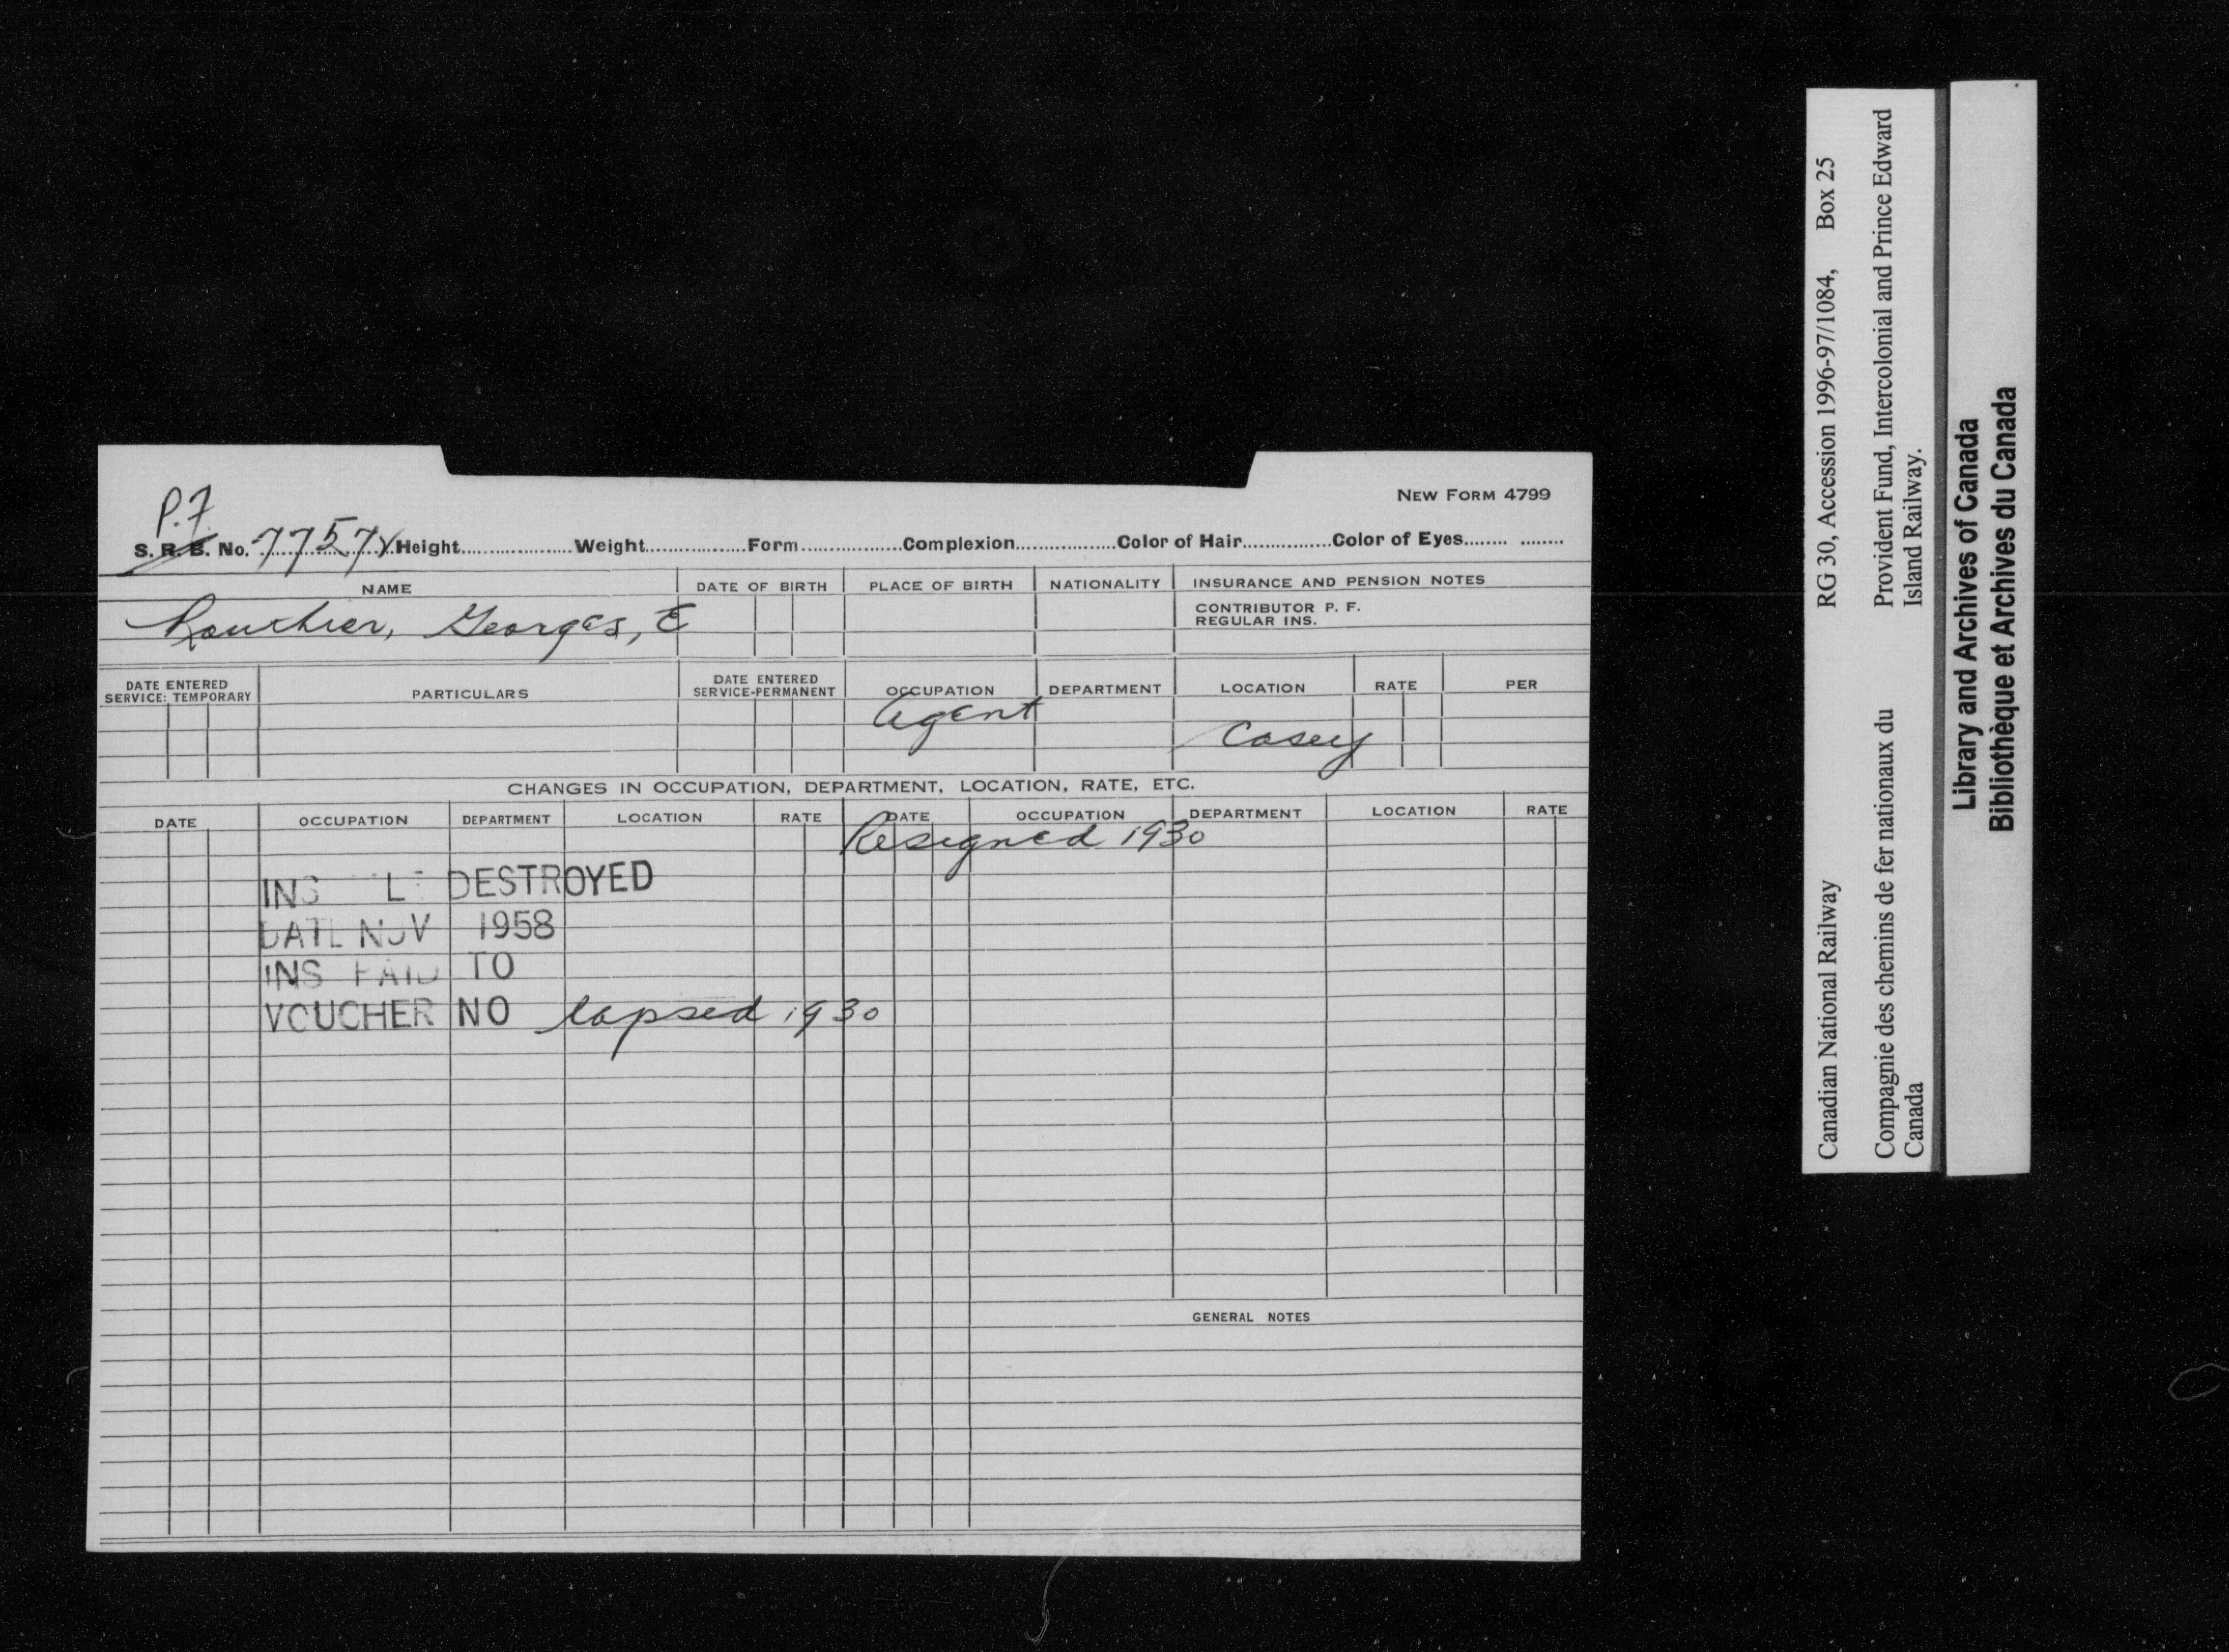 NEW FORM 4799
P.F.
S. R. B. No. 7757 Y Height Weight Form Complexion Color of Hair Color of Eyes
NAME DATE OF BIRTH PLACE OF BIRTH NATIONALITY INSURANCE AND PENSION NOTES
CONTRIBUTOR P. F.
REGULAR INS.
Georges, E
DATE ENTERED SERVICE: TEMPORARY PARTICULARS DATE ENTERED SERVICE-PERMANENT OCCUPATION DEPARTMENT LOCATION RATE PER
Agent
Casey
CHANGES IN OCCUPATION, DEPARTMENT, LOCATION, RATE, ETC.
DATE OCCUPATION DEPARTMENT LOCATION RATE DATE OCCUPATION DEPARTMENT LOCATION RATE
Resigned 1930
INS DESTROYED
DATE NOV 1958
INS PAID TO
VOUCHER NO lapsed 1930
GENERAL NOTES
Canadian National Railway RG 30, Accession 1996-97/1084, Box 25
Compagnie des chemins de fer nationaux du Provident Fund, Intercolonial and Prince Edward
Canada Island Railway.
Library and Archives of Canada
Bibliothèque et Archives du Canada